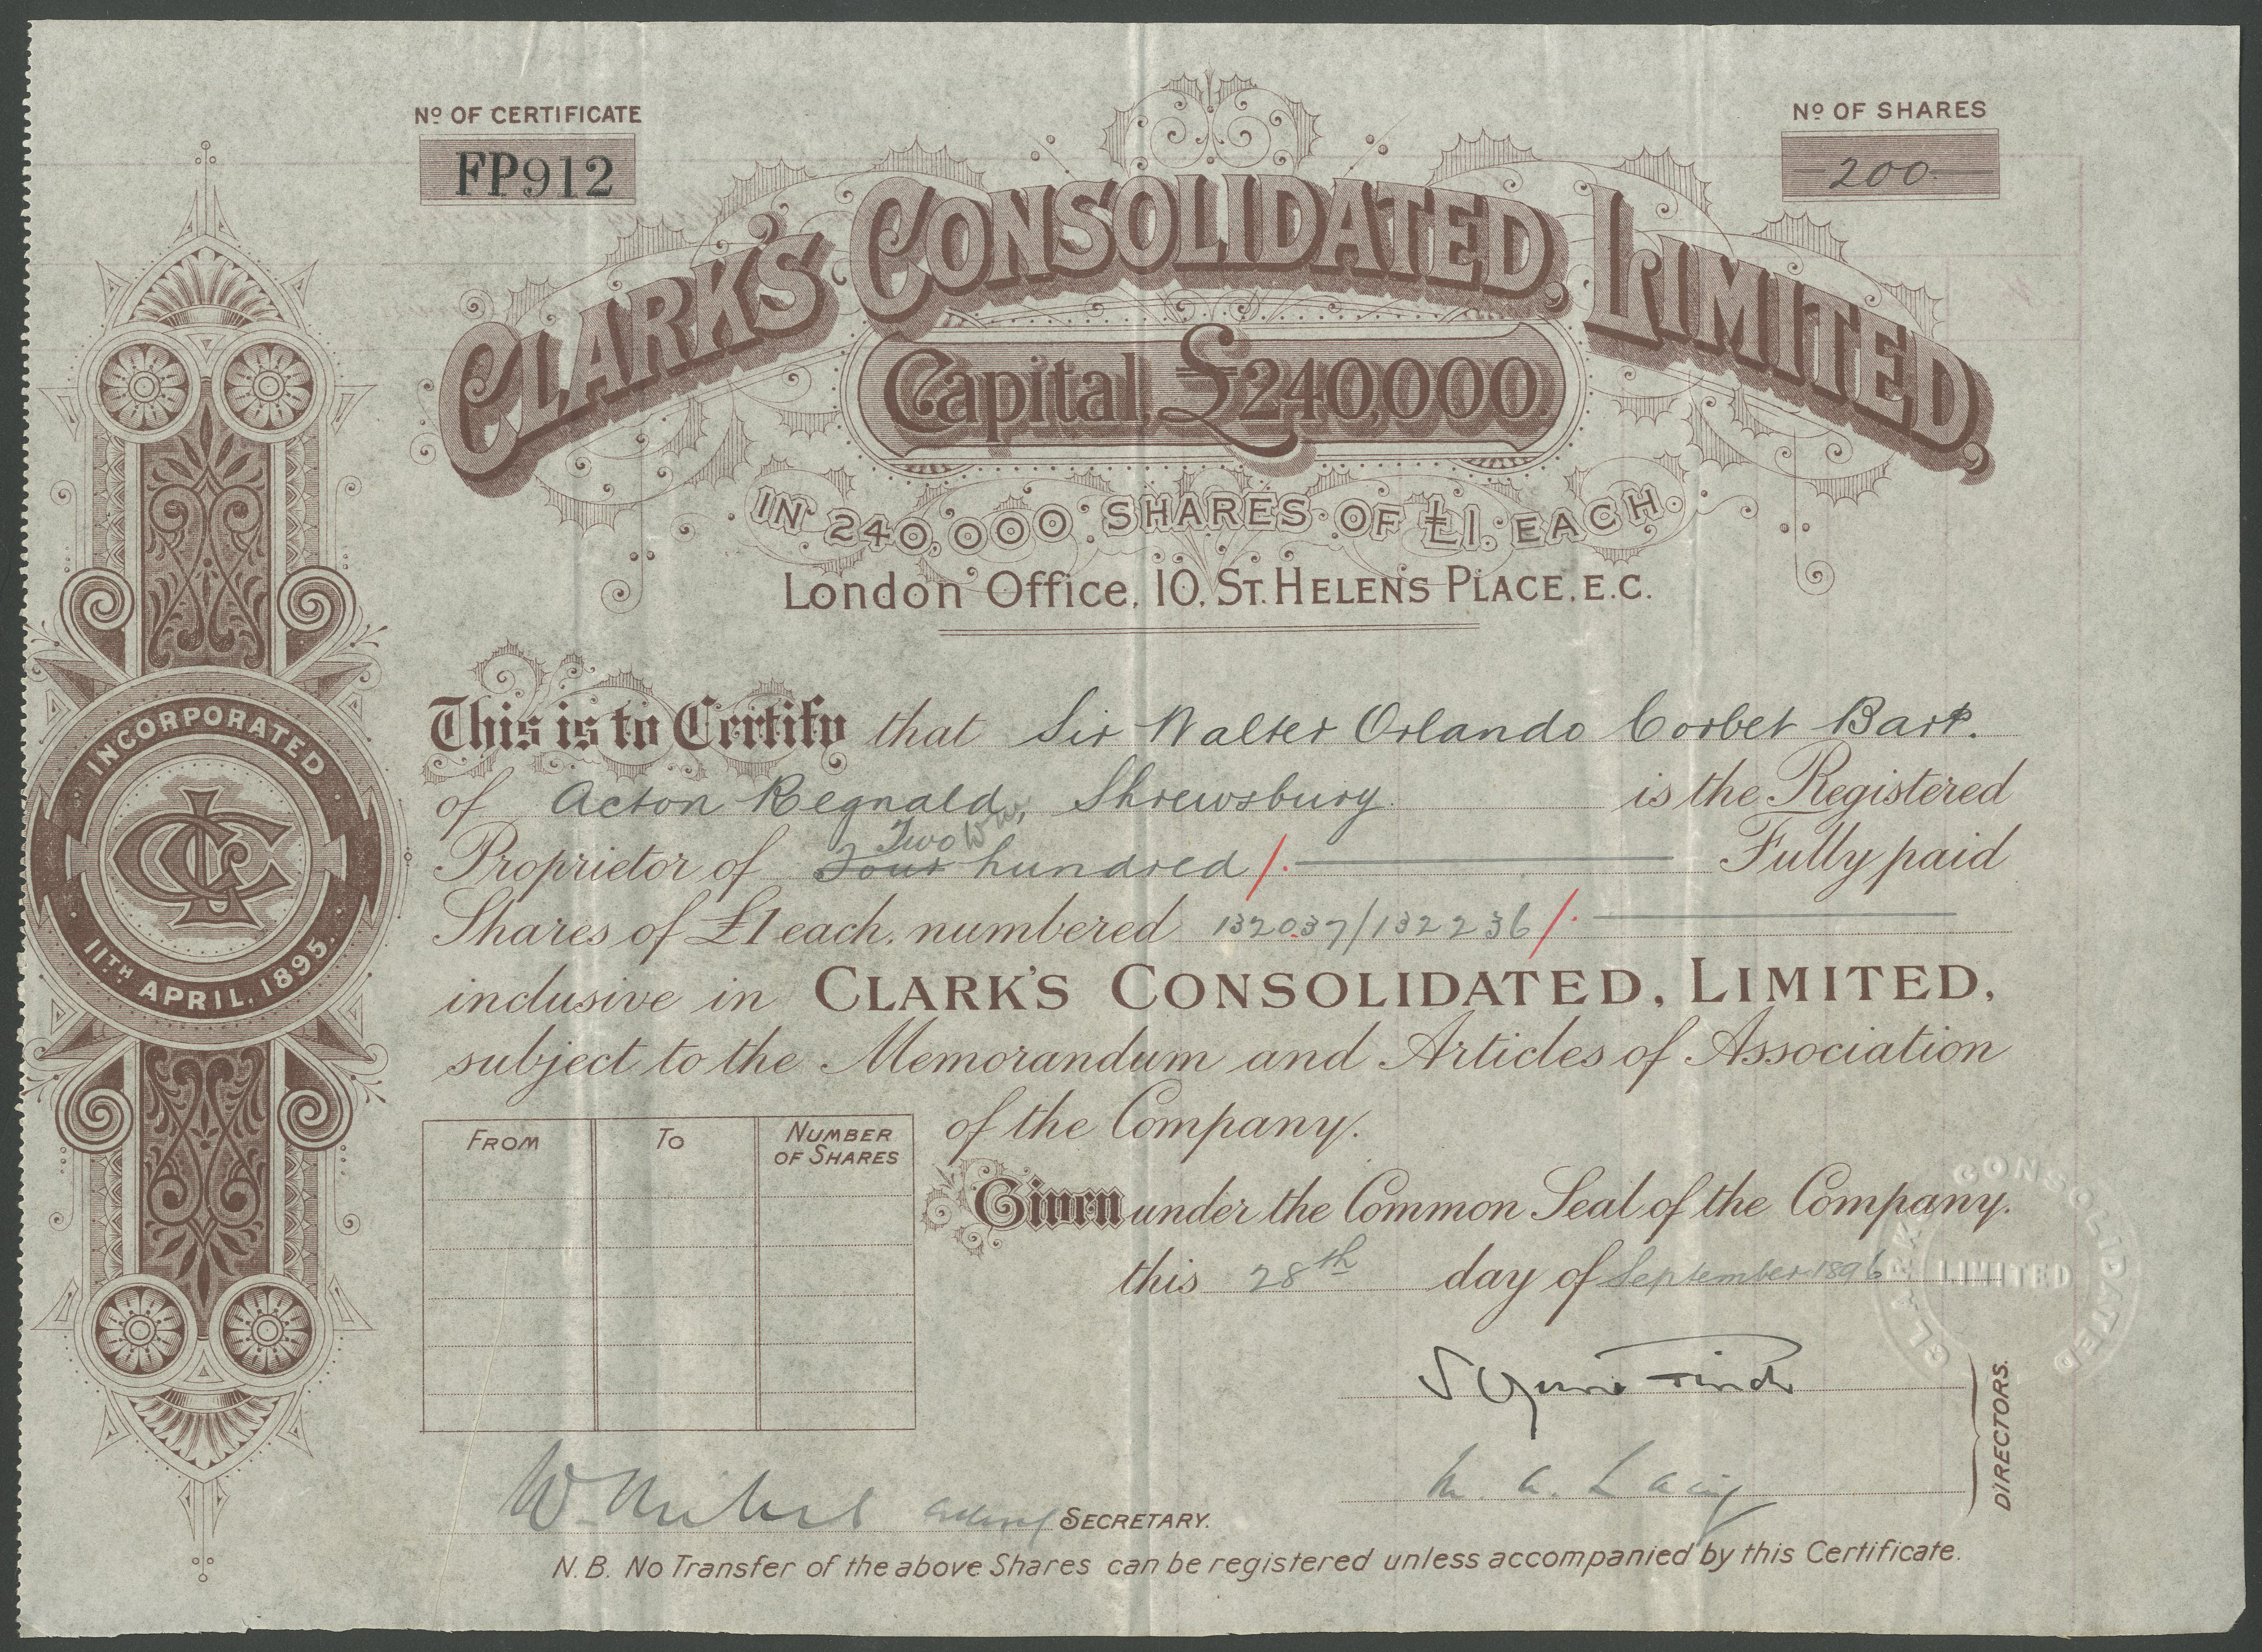 Nº OF CERTIFICATE
FP912
Nº OF SHARES
200.
CLARK'S CONSOLIDATED, LIMITED,
Capital, £240,000.
IN 240,000 SHARES OF £1. EACH.
London Office, 10, ST. HELEN'S PLACE, E.C.
This is to Certify that Sir Walter Orlando Corbet Bart.
of Acton Regnald, Shrewsbury. is the Registered
Two
Proprietor of Four hundred /. Fully paid
Shares of £1 each, numbered 132037/132236 /.
inclusive in CLARK'S CONSOLIDATED, LIMITED,
subject to the Memorandum and Articles of Association
of the Company.
FROM TO NUMBER OF SHARES
Given under the Common Seal of the Company.
this 28th day of September 1896
CLARK'S CONSOLIDATED
LIMITED
M. A. Laing
DIRECTORS.
W. SECRETARY.
N.B. No Transfer of the above Shares can be registered unless accompanied by this Certificate.
INCORPORATED
CCL
11TH APRIL, 1895.